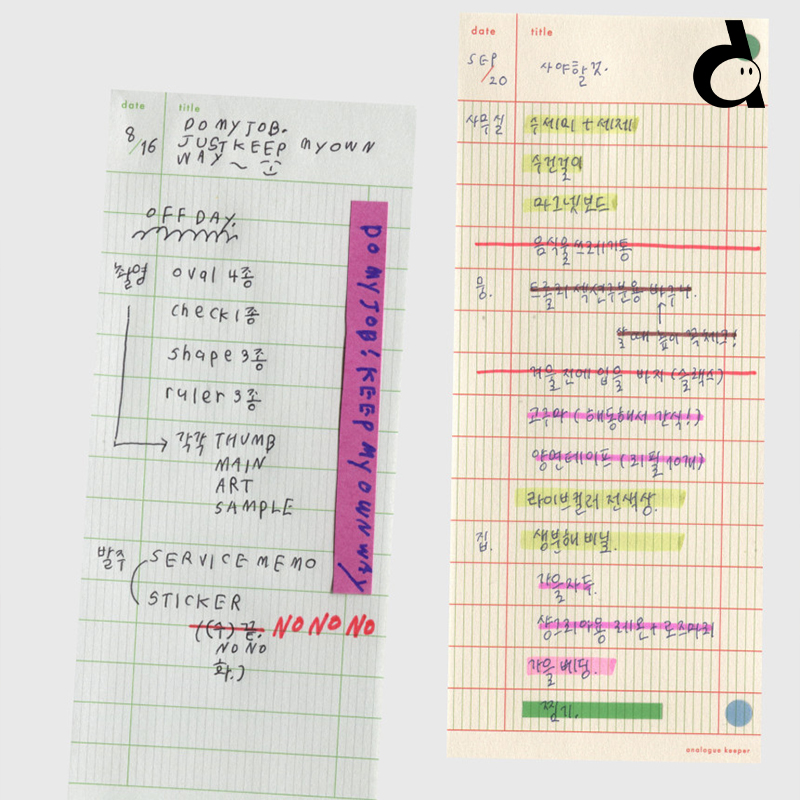 date title
8/16
DO MY JOB.
JUST KEEP MY OWN
WAY ~
OFF DAY.
촬영 oval 4종
check 1종
shape 3종
ruler 3종
각각 THUMB
MAIN
ART
SAMPLE
발주 SERVICE MEMO
STICKER
((수) 끝. NO NO NO
NO NO
화.)
DO MY JOB! KEEP MY OWN WAY
date title
SEP/20 사야할것.
사무실 수세미 + 세제
수건걸이
마그넷보드
음식물쓰레기통
뭉. 트롤리 섹션구분용 바구니.
살 때 높이 꼭 체크!
겨울 전에 입을 바지 (슬랙스)
고구마 (해동해서 간식!)
양면테이프 (리필 10개)
라이브컬러 전색상.
집. 생분해 비닐.
가을자두.
샹그리아용 레몬 + 로즈마리
가을 베딩.
찜기.
analogue keeper
d